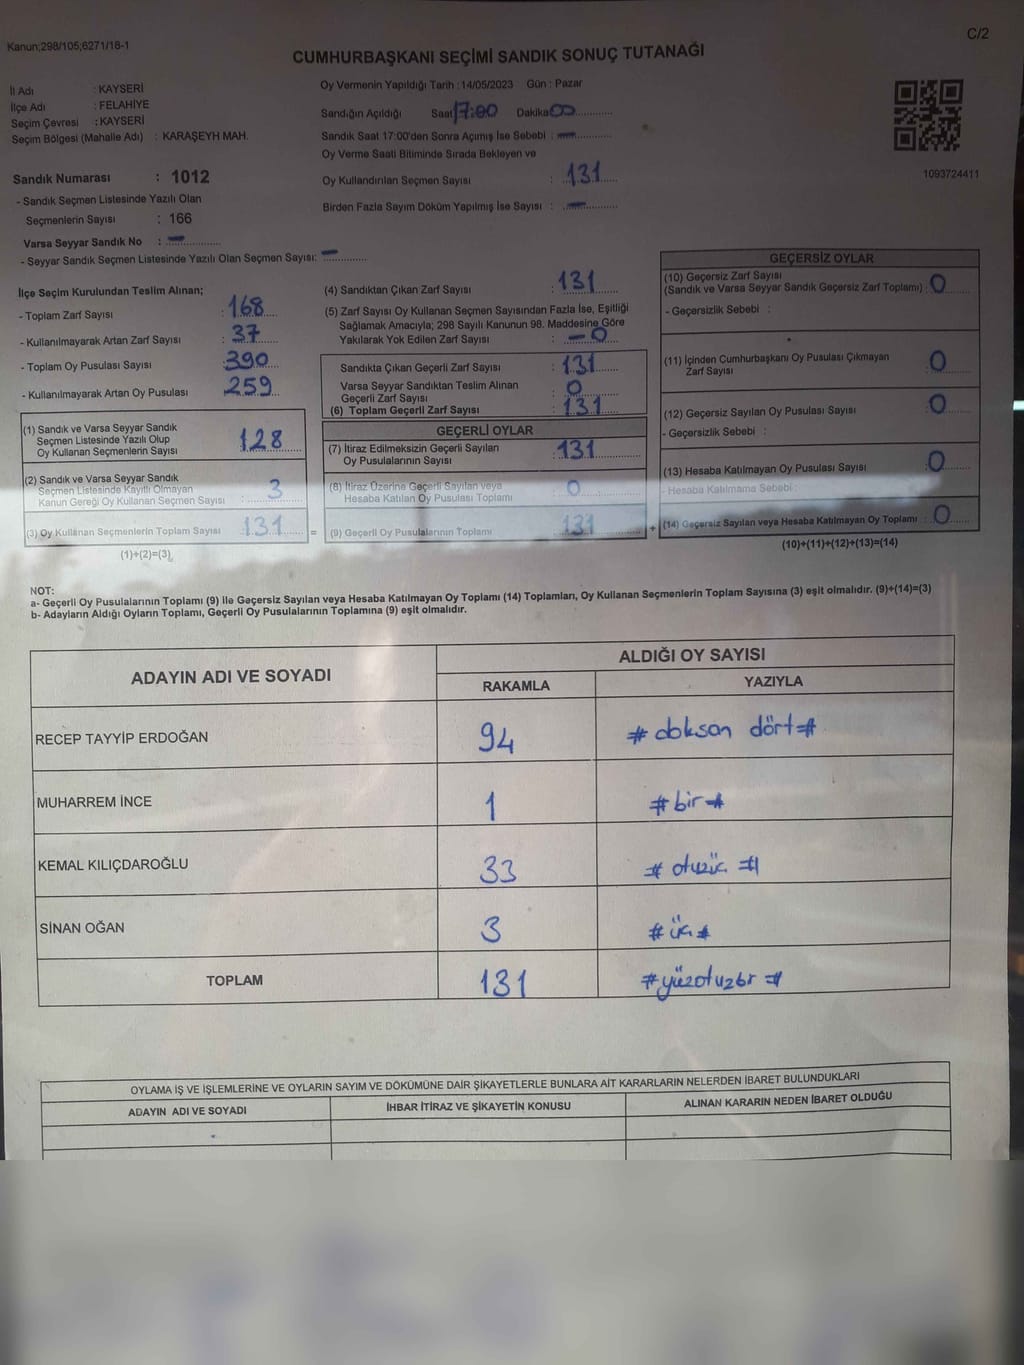 Kanun;298/105;6271/18-1
C/2
CUMHURBAŞKANI SEÇİMİ SANDIK SONUÇ TUTANAĞI
İl Adı : KAYSERİ
İlçe Adı : FELAHİYE
Seçim Çevresi : KAYSERİ
Seçim Bölgesi (Mahalle Adı) : KARAŞEYH MAH.
Oy Vermenin Yapıldığı Tarih : 14/05/2023 Gün : Pazar
Sandığın Açıldığı Saat 17:00 Dakika 00
Sandık Saat 17:00'den Sonra Açımış İse Sebebi : —
Oy Verme Saati Bitiminde Sırada Bekleyen ve
Oy Kullandırılan Seçmen Sayısı : 131
Birden Fazla Sayım Döküm Yapılmış İse Sayısı : —
1093724411
Sandık Numarası : 1012
- Sandık Seçmen Listesinde Yazılı Olan
Seçmenlerin Sayısı : 166
Varsa Seyyar Sandık No : —
- Seyyar Sandık Seçmen Listesinde Yazılı Olan Seçmen Sayısı: —
İlçe Seçim Kurulundan Teslim Alınan;
- Toplam Zarf Sayısı : 168
- Kullanılmayarak Artan Zarf Sayısı : 37
- Toplam Oy Pusulası Sayısı : 390
- Kullanılmayarak Artan Oy Pusulası : 259
(1) Sandık ve Varsa Seyyar Sandık
Seçmen Listesinde Yazılı Olup
Oy Kullanan Seçmenlerin Sayısı 128
(2) Sandık ve Varsa Seyyar Sandık
Seçmen Listesinde Kayıtlı Olmayan
Kanun Gereği Oy Kullanan Seçmen Sayısı : 3
(3) Oy Kullanan Seçmenlerin Toplam Sayısı : 131 =
(1)+(2)=(3)
(4) Sandıktan Çıkan Zarf Sayısı : 131
(5) Zarf Sayısı Oy Kullanan Seçmen Sayısından Fazla İse, Eşitliği
Sağlamak Amacıyla; 298 Sayılı Kanunun 98. Maddesine Göre
Yakılarak Yok Edilen Zarf Sayısı : — 0
Sandıkta Çıkan Geçerli Zarf Sayısı : 131
Varsa Seyyar Sandıktan Teslim Alınan
Geçerli Zarf Sayısı : 0
(6) Toplam Geçerli Zarf Sayısı : 131
GEÇERLİ OYLAR
(7) İtiraz Edilmeksizin Geçerli Sayılan
Oy Pusulalarının Sayısı : 131
(8) İtiraz Üzerine Geçerli Sayılan veya
Hesaba Katılan Oy Pusulası Toplamı : 0
(9) Geçerli Oy Pusulalarının Toplamı : 131 +
GEÇERSİZ OYLAR
(10) Geçersiz Zarf Sayısı
(Sandık ve Varsa Seyyar Sandık Geçersiz Zarf Toplamı) : 0
- Geçersizlik Sebebi :
(11) İçinden Cumhurbaşkanı Oy Pusulası Çıkmayan
Zarf Sayısı : 0
(12) Geçersiz Sayılan Oy Pusulası Sayısı : 0
- Geçersizlik Sebebi :
(13) Hesaba Katılmayan Oy Pusulası Sayısı : 0
- Hesaba Katılmama Sebebi :
(14) Geçersiz Sayılan veya Hesaba Katılmayan Oy Toplamı : 0
(10)+(11)+(12)+(13)=(14)
NOT:
a- Geçerli Oy Pusulalarının Toplamı (9) ile Geçersiz Sayılan veya Hesaba Katılmayan Oy Toplamı (14) Toplamları, Oy Kullanan Seçmenlerin Toplam Sayısına (3) eşit olmalıdır. (9)+(14)=(3)
b- Adayların Aldığı Oyların Toplamı, Geçerli Oy Pusulalarının Toplamına (9) eşit olmalıdır.
ADAYIN ADI VE SOYADI
ALDIĞI OY SAYISI
RAKAMLA YAZIYLA
RECEP TAYYİP ERDOĞAN 94 # doksan dört #
MUHARREM İNCE 1 # bir #
KEMAL KILIÇDAROĞLU 33 # otuzüç #
SİNAN OĞAN 3 # üç #
TOPLAM 131 # yüzotuzbr #
OYLAMA İŞ VE İŞLEMLERİNE VE OYLARIN SAYIM VE DÖKÜMÜNE DAİR ŞİKAYETLERLE BUNLARA AİT KARARLARIN NELERDEN İBARET BULUNDUKLARI
ADAYIN ADI VE SOYADI İHBAR İTİRAZ VE ŞİKAYETİN KONUSU ALINAN KARARIN NEDEN İBARET OLDUĞU